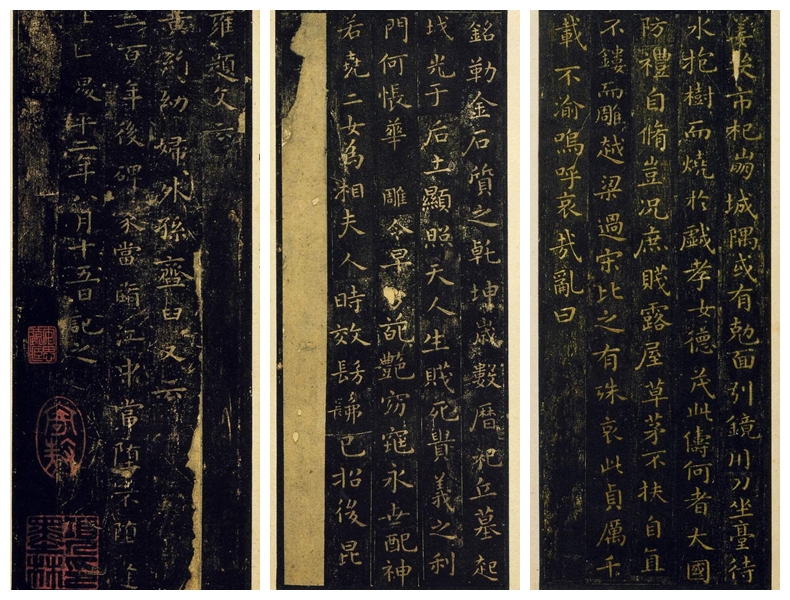 市杞崩城隅或有剋面引鏡用刀坐臺待
水抱樹而燒於戲孝女德茂此儔何者大國
防禮自脩豈況庶賤露屋草茅不扶自直
不鏤而雕越梁過宋比之有殊哀此貞厲千
載不渝嗚呼哀哉亂曰
銘勒金石質之乾坤歲數曆祀丘墓起
墳光于后土顯照天人生賤死貴義之利
門何悵華雕零早葩艷窈窕永世配神
若堯二女為相夫人時效髣髴已招後昆
雍題文云
黃絹幼婦外孫齏臼又云
三百年後碑冢當墮江中當墮不墮逢
平二年八月十五日記之